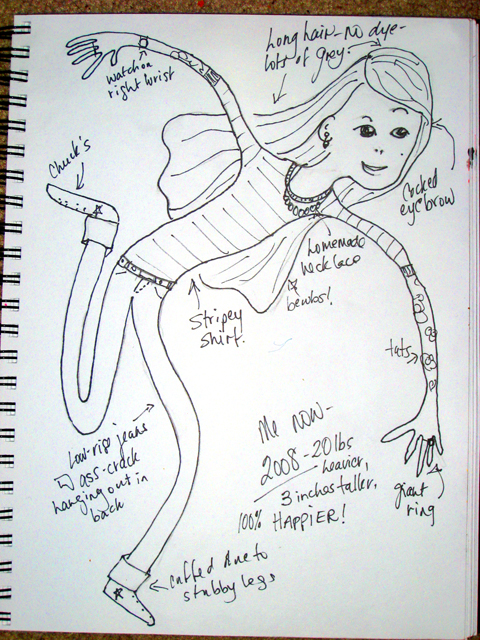 Long hair - no dye -
lots of grey.
watch on
right wrist
Chuck's
Cocked
eyebrow
homemade
necklace
bewbs!
Stripey
shirt.
tats
Me now -
2008 - 20 lbs
heavier,
3 inches taller,
100% HAPPIER!
giant
ring
Low-rise jeans
w/ ass-crack
hanging out in
back
cuffed due to
stubby legs